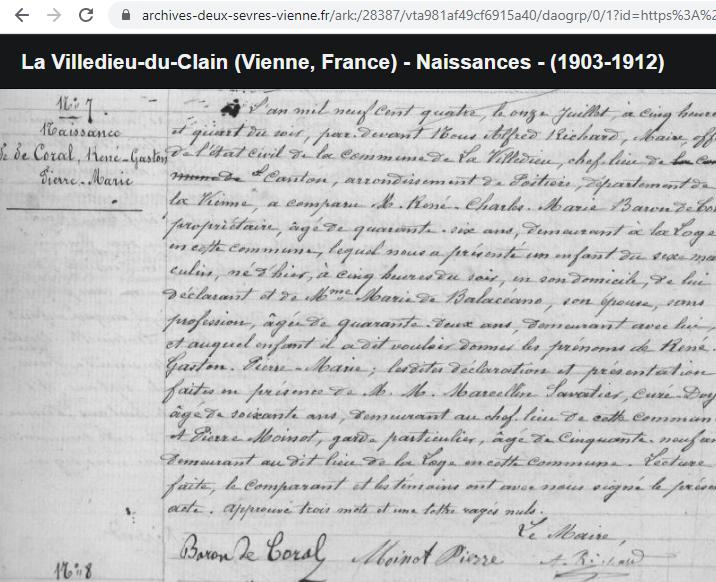 archives-deux-sevres-vienne.fr/ark:/28387/vta981af49cf6915a40/daogrp/0/1?id=https%3A%2
La Villedieu-du-Clain (Vienne, France) - Naissances - (1903-1912)
Nº 7
Naissance
de Coral, René-Gaston
Pierre-Marie
L'an mil neuf cent quatre, le onze Juillet, à cinq heure
et quart du soir, par devant Nous Alfred Richard, Maire, off
de l'état civil de la commune de La Villedieu, chef-lieu de la com
mune de Canton, arrondissement de Poitiers, département de
la Vienne, a comparu M. René-Charles-Marie Baron de Co
propriétaire, âgé de quarante-six ans, demeurant à la Loge
en cette commune, lequel nous a présenté un enfant du sexe mas
culin, né d'hier, à cinq heures du soir, en son domicile, de lui
déclarant et de Mme Marie de Balaceano, son épouse, sans
profession, âgée de quarante-deux ans, demeurant avec lui,
et auquel enfant il a dit vouloir donner les prénoms de René-
Gaston-Pierre-Marie; les dites déclaration et présentation
faites en présence de M. M. Marcellin Savatier, Curé-Doy
âgé de soixante ans, demeurant au chef-lieu de cette commun
et Pierre Moinot, garde particulier, âgé de cinquante-neuf an
demeurant au dit lieu de la Loge en cette commune. Lecture
faite, le comparant et les témoins ont avec nous signé le prése
acte. Approuvé trois mots et une lettre rayés nuls.
Le Maire,
Baron de Coral Moinot Pierre A. Richard
Nº 8